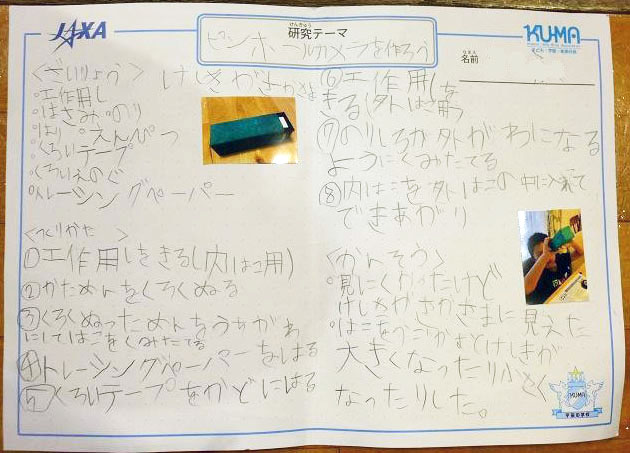 JAXA
けんきゅう
研究テーマ
ピンホールカメラを作ろう
KUMA
なまえ
名前
<ざいりょう>
けしきがさかさま
・工作用し
・はさみ ・のり
・はり ・えんぴつ
・くろいテープ
・くろいえのぐ
・トレーシングペーパー
<つくりかた>
①工作用しをきる(内はこ用)
②かためんをくろくぬる
③くろくぬっためんをうちがわ
にしてはこをくみたてる
④トレーシングペーパーをはる
⑤くろいテープをかどにはる
⑥工作用しを
きる(外はこ用)
⑦のりしろが外がわになる
ようにくみたてる
⑧内はこを外はこの中に入れて
できあがり
<かんそう>
・見にくかったけど
けしきがさかさまに見えた
・はこをうごかすとけしきが
大きくなったり小さく
なったりした。
KUMA
宇宙の学校